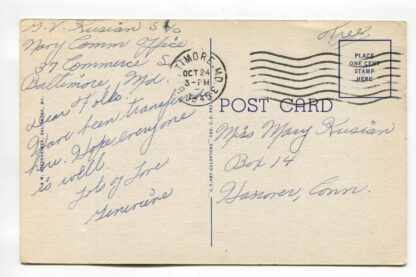 G. V. Kusian S 1/c
Navy Comm Office
37 Commerce St
Baltimore, Md.
Dear Folks.
Have been transferred
here. Hope everyone
is well.
Lots of Love
Genevieve
BALTIMORE, MD.
OCT 24
3-PM
Free
PLACE
ONE CENT
STAMP
HERE
POST CARD
Miss Mary Kusian
Box 14
Hanover, Conn.